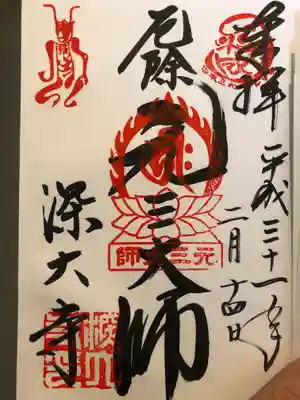 奉拝 平成三十一年
二月十四日
厄除 元三大師
元三大師
深大寺